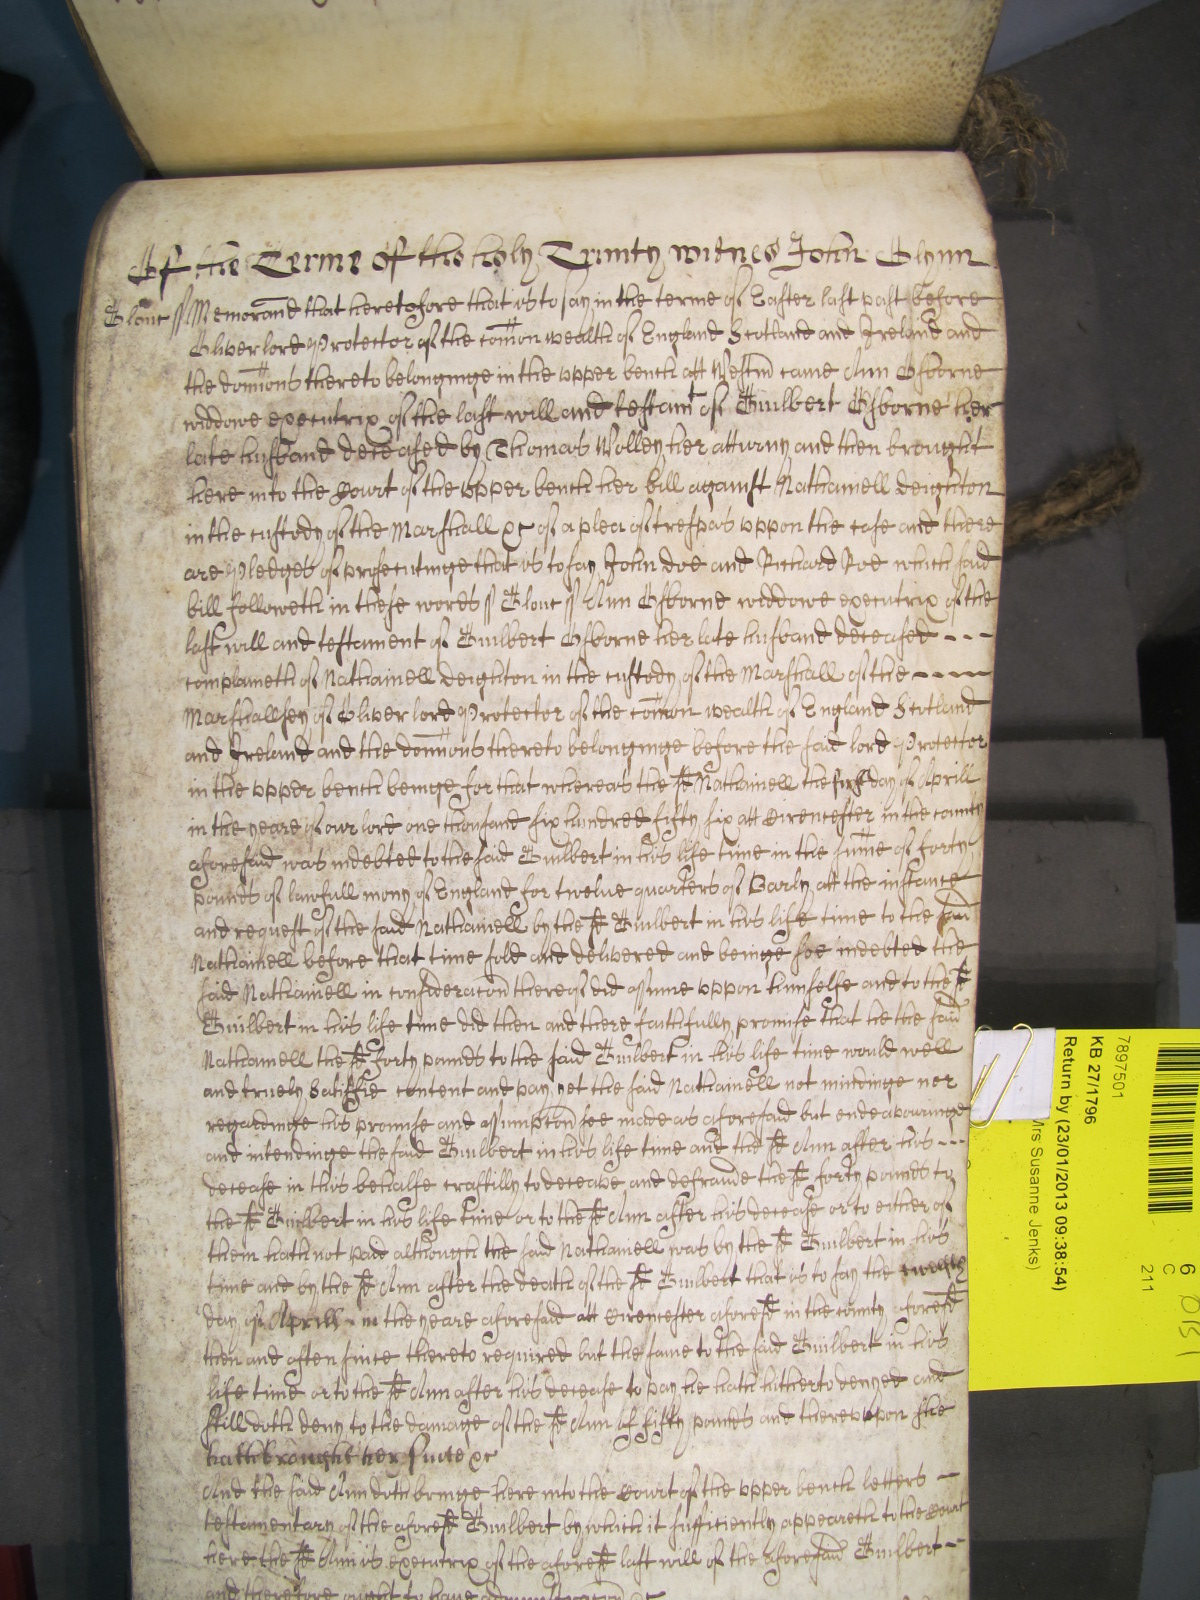 Of the Terme Of the holy Trinity witnes John Glynn
Glouc ss Memorand that heretofore that is to say in the terme of Easter last past before
Oliver lord Protector of the comon wealth of England Scotland and Ireland and
the domions thereto belonginge in the upper bench att Westm came Ann Osborne
widdowe executrix of the last will and testamt of Guilbert Osborne her
late husband deceased by Thomas Wolley her atturny and then brought
here into the Court of the upper bench her bill against Nathaniell deighton
in the custody of the Marshall &c of a plea of trespas uppon the case and there
are Pledges of prosecutinge that is to say John doe and Richard Roe which said
bill followeth in these words ss Glouc ss Ann Osborne widdowe executrix of the
last will and testament of Guilbert Osborne her late husband deceased - - -
complaineth of Nathaniell deighton in the custody of the Marshall of the - - - -
Marshallsey of Oliver lord Protector of the comon wealth of England Scotland
and Ireland and the domions thereto belonginge before the said lord Protector
in the upper bench beinge for that whereas the sd Nathaniell the first day of Aprill
in the yeare of our lord one thousand six hundred fifty six att Cirencester in the county
aforesaid was indebted to the said Guilbert in his life time in the sume of forty
pounds of lawfull mony of England for twelve quarters of Barly att the instance
and request of the said Nathaniell by the sd Guilbert in his life time to the said
Nathaniell before that time sold and delivered and beinge soe indebted the
said Nathaniell in consideracon thereof did assume uppon himselfe and to the sd
Guilbert in his life time did then and there faithfully promise that he the said
Nathaniell the sd forty pounds to the said Guilbert in his life time would well
and truely Satisfie content and pay yet the said Nathaniell not mindinge nor
regardinge his promise and assumpton soe made as aforesaid but endeavouringe
and intendinge the said Guilbert in his life time and the sd Ann after his - - -
decease in this behalfe craftilly to deceave and defraude the sd forty pounds to
the sd Guilbert in his life time or to the sd Ann after his decease or to either of
them hath not paid although the said Nathaniell was by the sd Guilbert in his
time and by the sd Ann after the death of the sd Guilbert that is to say the
day of Aprill in the yeare aforesaid att Cirencester aforesd in the county aforesd
then and often since thereto required but the same to the said Guilbert in his
life time or to the sd Ann after his decease to pay he hath hitherto denyed and
still doth deny to the damage of the sd Ann of fifty pounds and thereuppon she
hath brought her Suite &c
And the said Ann doth bringe here into the Court of the upper bench letters -
testamentary of the aforesd Guilbert by which it sufficiently appeareth to the Court
here the sd Ann is executrix of the aforesd last will of the aforesaid Guilbert -
and therefore ought to have administracon &c
7897501
KB 27/1796
Return by (23/01/2013 09:38:54)
Mrs Susanne Jenks)
6
C
211